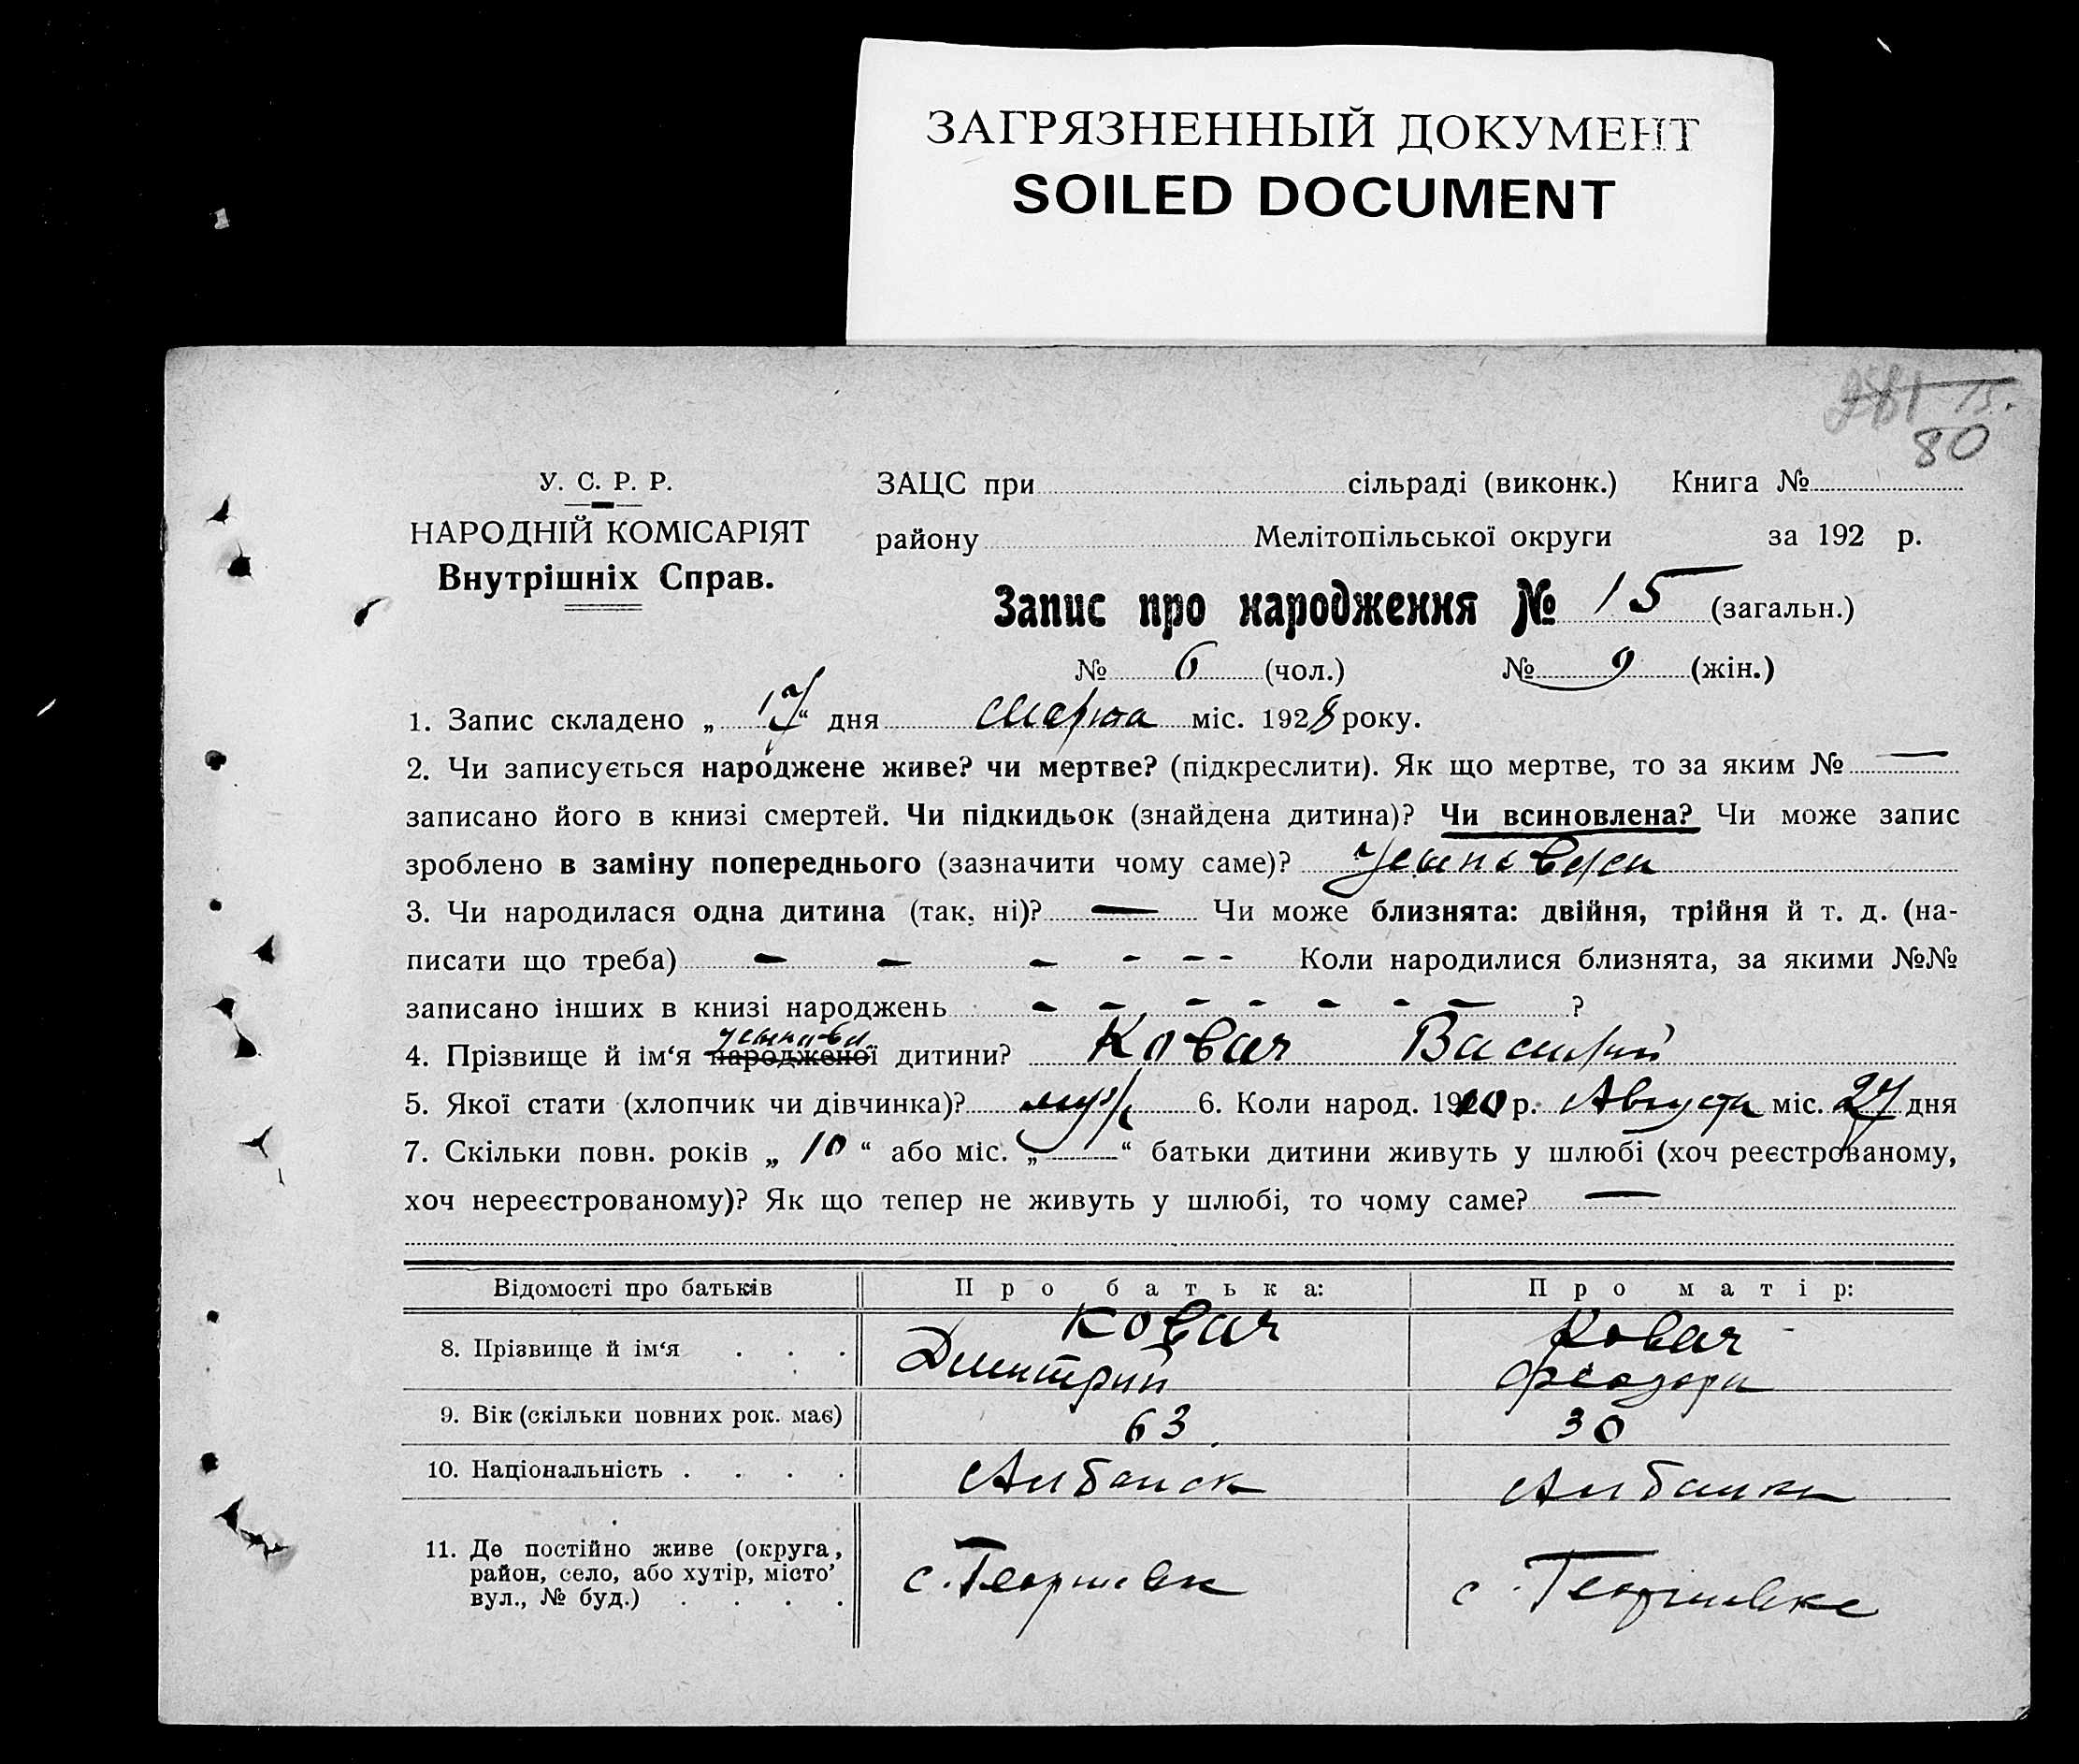 ЗАГРЯЗНЕННЫЙ ДОКУМЕНТ
SOILED DOCUMENT
80
У. С. Р. Р.
НАРОДНІЙ КОМІСАРІЯТ
Внутрішніх Справ.
ЗАЦС при сільраді (виконк.) Книга №
району Мелітопільської округи за 192 р.
Запис про народження № 15 (загальн.)
№ 6 (чол.) № 9 (жін.)
1. Запис складено „17“ дня Марта міс. 1928 року.
2. Чи записується народжене живе? чи мертве? (підкреслити). Як що мертве, то за яким № —
записано його в книзі смертей. Чи підкидьок (знайдена дитина)? Чи всиновлена? Чи може запис
зроблено в заміну попереднього (зазначити чому саме)?
3. Чи народилася одна дитина (так, ні)? — Чи може близнята: двійня, трійня й т. д. (на-
писати що треба) - - - - - - Коли народилися близнята, за якими №№
записано інших в книзі народжень - - - - - - - ?
4. Прізвище й ім‘я народженої дитини? Ковач Василий
5. Якої стати (хлопчик чи дівчинка)? муж 6. Коли народ. 19 р. Августа міс. 27 дня
7. Скільки повн. років „10“ або міс. „ “ батьки дитини живуть у шлюбі (хоч реєстрованому,
хоч нереєстрованому)? Як що тепер не живуть у шлюбі, то чому саме? —
Відомості про батьків Про батька: Про матір:
8. Прізвище й ім‘я . . . Ковач Дмитрий Ковач Феодора
9. Вік (скільки повних рок. має) 63 30
10. Національність . . . . Албанск Албанка
11. Де постійно живе (округа,
район, село, або хутір, місто’
вул., № буд.) . . . .
с. Георгиевк с. Георгиевке